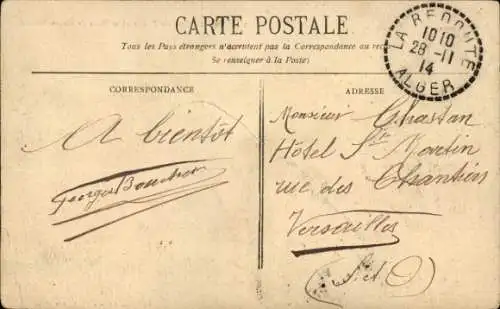 CARTE POSTALE
Tous les Pays étrangers n'acceptent pas la Correspondance au recto
Se renseigner à la Poste)
LA REDOUTE
1010
28 -11
14
ALGER
CORRESPONDANCE
A bientôt
Georges Boucher
ADRESSE
Monsieur Chastan
Hôtel St Martin
rue des Chantiers
Versailles
(S. et O)